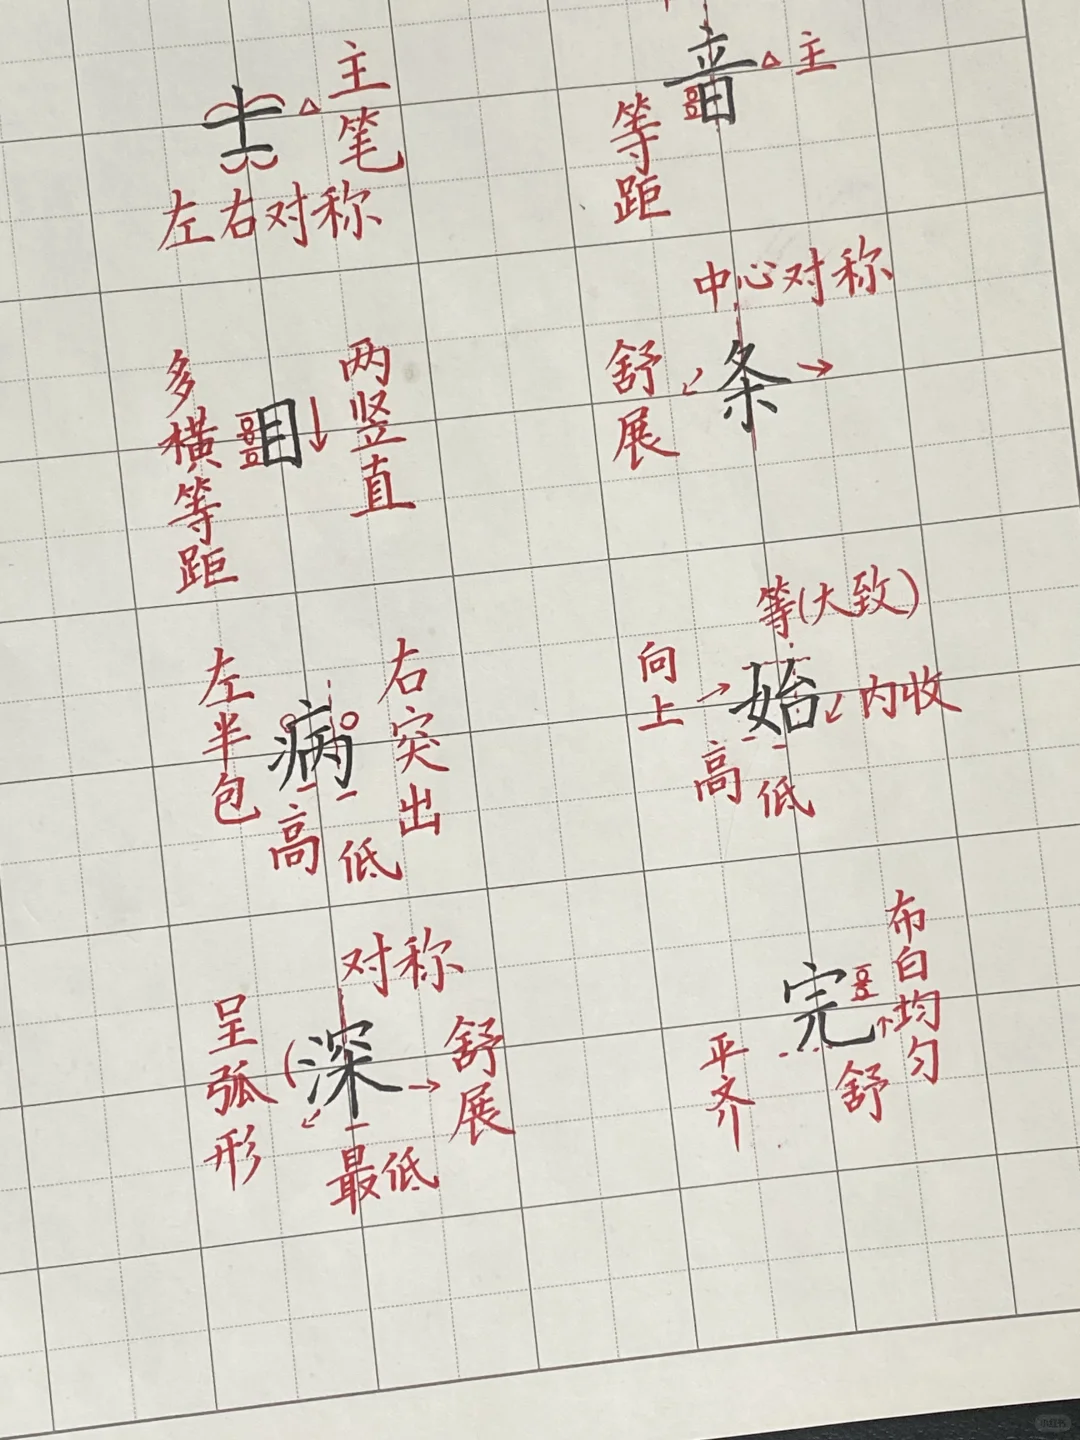 士
主笔
左右对称
音
主
等距
目
多横等距
两竖直
条
中心对称
舒展
病
左半包
右突出
高
低
始
等(大致)
向上
内收
高
低
深
对称
呈弧形
舒展
最低
完
布白均匀
平齐
舒
小红书